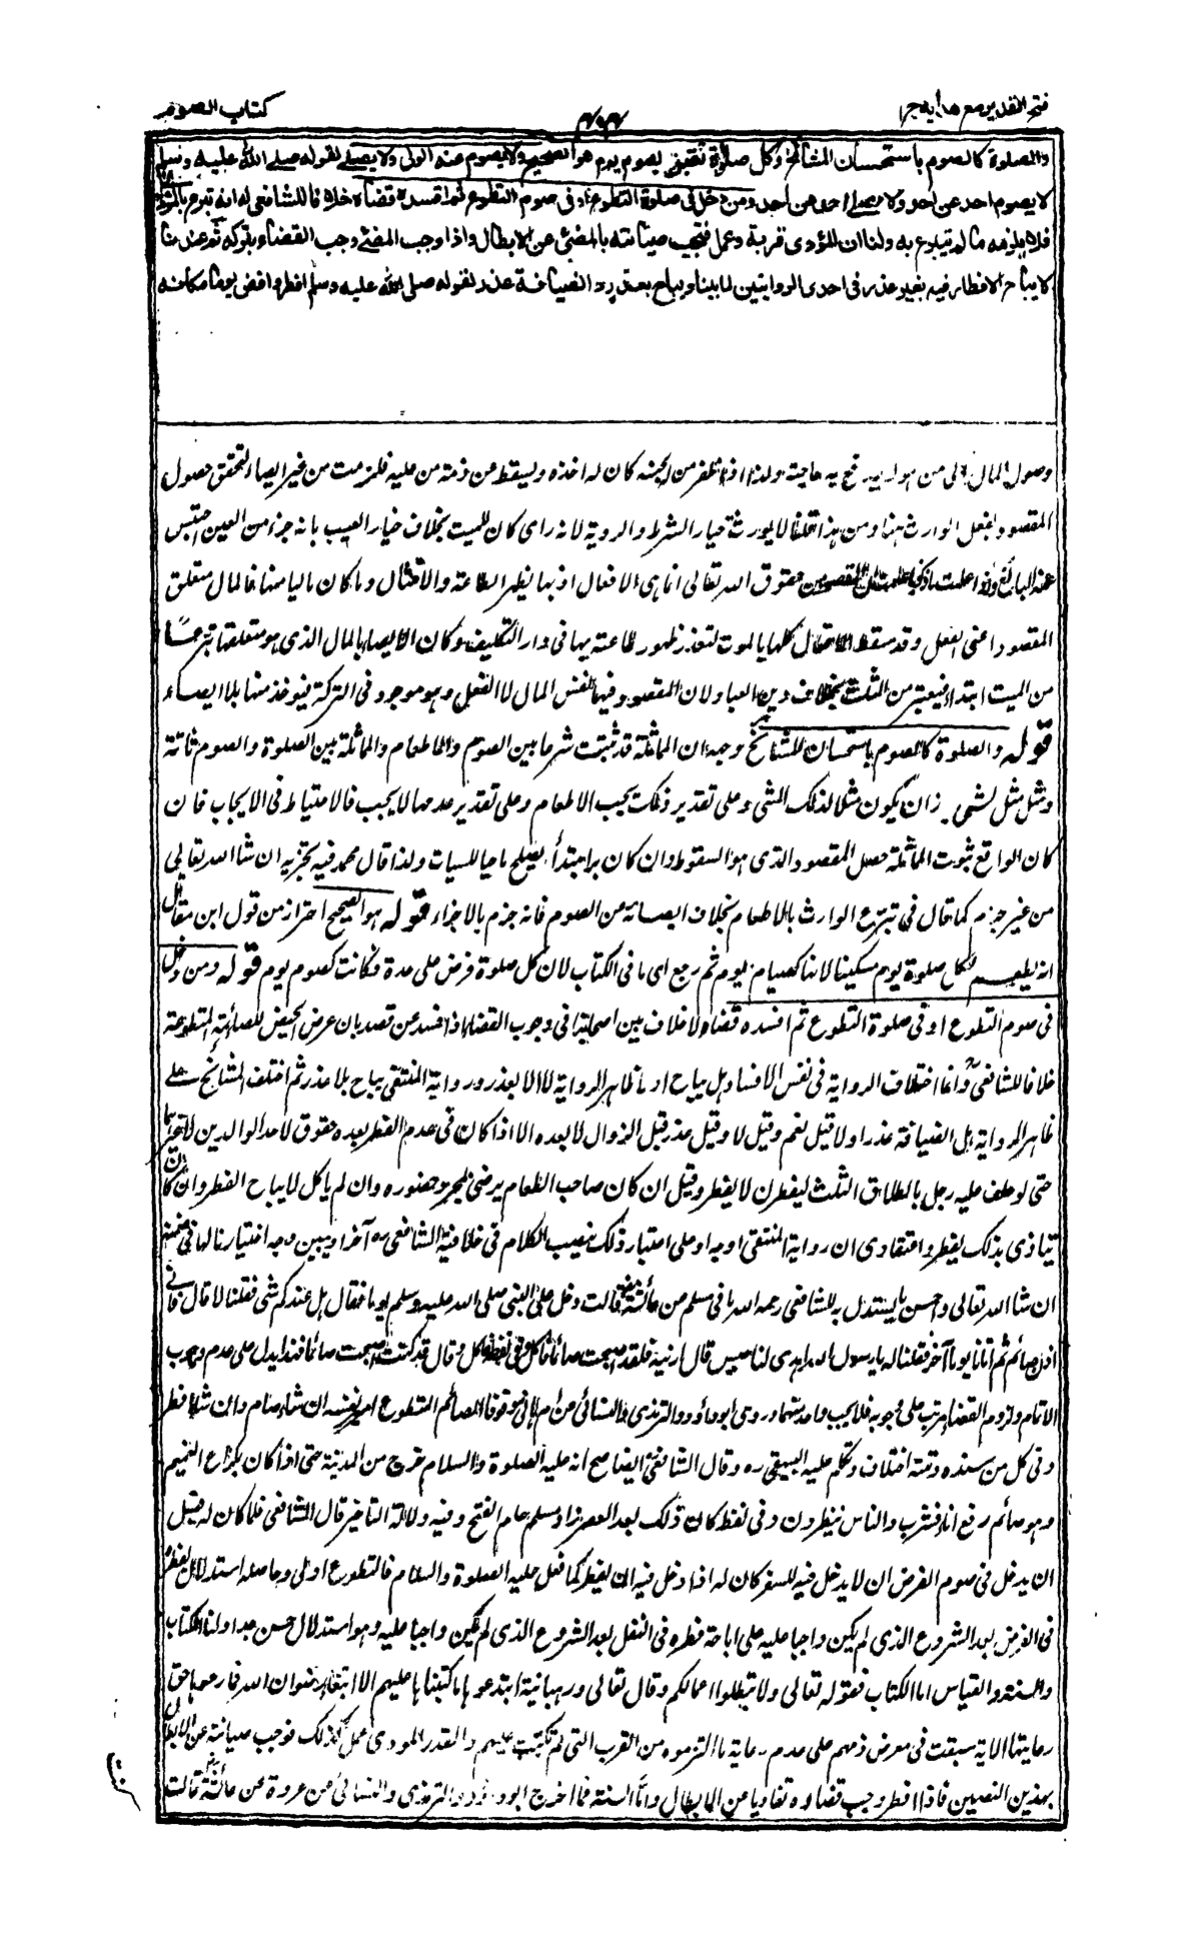 فتح القدير مع هدايه ج١
كتاب الصوم
والصلوة كالصوم باستحسان المشائخ وكل صلوة تعتبر بصوم يوم هو الصحيح ولا يصوم عنه الولى ولا يصلے لقوله صلے الله عليه وسلم
لا يصوم احد عن احد ولا يصلے احد عن احد ومن دخل فى صلوة التطوع او فى صوم التطوع ثم افسده قضاه خلافا للشافعى له انه تبرع بالمؤدى
فلا يلزمه ما لم يتبرع به ولنا ان المؤدى قربة وعمل فتجب صيانته بالمضى عن الابطال واذا وجب المضے وجب القضاء بتركه ثم عندنا
لا يباح الافطار فيه بغير عذر فى احدى الروايتين لما بينا ويباح بعذر والضيافة عذر لقوله صلى الله عليه وسلم افطر واقض يوما مكانه
وصول المال الى من هو له ليدفع به حاجته ولذا اذا ظفر من الجنسه كان له اخذه ويسقط عن ذمة من عليه فلزمت من غير ايصاء لتحقق حصول
المقصود بفعل الوارث هنا ومن هذا قلنا لا يورث خيار الشرط والروية لانه راى كان للميت بخلاف خيار العيب بانه جزء من العين احتبس
عند البائع واذا علمت ما ذكرنا علمت ان المقصود من حقوق الله تعالى انما هى الافعال اذ بها تظهر الطاعة والامتثال وما كان ماليا منها فالمال متعلق
المقصود اعنى الفعل وقد سقط الافعال كلها بالموت لتعذر ظهور طاعته بها فى دار التكليف وكان الايصاء بالمال الذى هو متعلقها تبرعا
من الميت ابتداء فيعتبر من الثلث بخلاف دين العباد لان المقصود فيها نفس المال لا الفعل وهو موجود فى التركة فيؤخذ منها بلا ايصاء
قوله والصلوة كالصوم باستحسان المشائخ وجهه ان المماثلة قد ثبتت شرعا بين الصوم والاطعام والمماثلة بين الصلوة والصوم ثابتة
ومثل مثل لشى جاز ان يكون مثلا لذلك الشى وعلى تقدير ذلك يجب الاطعام وعلى تقدير عدمها لا يجب فالاحتياط فى الايجاب فان
كان الواقع ثبوت المماثلة حصل المقصود الذى هو السقوط وان كان برا مبتدأ يصلح ماحيا للسيات ولذا قال محمد فيه يجزيه ان شاالله تعالى
من غير جزم كما قال فى تبرع الوارث بالاطعام بخلاف ايصائه عن الصوم فانه جزم بالاجزاء قوله هو الصحيح احتراز من قول ابن مقاتل
انه يطعم لكل صلوة يوم مسكينا لانها كصيام يوم ثم رجع اى ما فى الكتاب لان كل صلوة فرض على حدة فكانت كصوم يوم قوله ومن دخل
فى صوم التطوع او فى صلوة التطوع ثم افسده قضاه لا خلاف بين اصحابنا فى وجوب القضاء اذا فسد عن قصد بان عرض الحيض للصائمة المتطوعة
خلافا للشافعى وانما اختلاف الرواية فى نفس الافساد هل يباح او لا ظاهر الرواية لا الا بعذر ورواية المنتقى يباح بلا عذر ثم اختلف المشائخ على
ظاهر الرواية هل الضيافة عذر او لا قيل نعم وقيل لا وقيل عذر قبل الزوال لا بعده الا اذا كان فى عدم الفطر بعده عقوق لاحد الوالدين لا غيرهما
حتى لو حلف عليه رجل بالطلاق الثلث ليفطرن لا يفطر وقيل ان كان صاحب الطعام يرضى بمجرد حضوره وان لم ياكل لا يباح الفطر وان كان
يتاذى بذلك ليفطر واعتقادى ان رواية المنتقى اوجه وعلى اعتبار ذلك نصيب الكلام فى خلافية الشافعى ره آخرا ويبين وجه اختيارنا لها فى ضمنه
ان شا الله تعالى واحسن ما يستدل به للشافعى رحمه الله ما فى مسلم عن عائشة قالت دخل على النبى صلى الله عليه وسلم يوما فقال هل عندكم شى فقلنا لا قال فانى
اذن صائم ثم اتانا يوما آخر فقلنا له يا رسول الله اهدى لنا حيس قال ارنيه فلقد اصبحت صائما فاكل وفى لفظ فاكل وقال قد كنت اصبحت صائما فهذا يدل على عدم وجوب
الاتمام ولزوم القضاء مرتب على وجوبه فلا يجب واحد منهما وروى ابو داؤد والترمذى والنسائى عن ام هانى مرفوعا الصائم المتطوع امير نفسه ان شاء صام وان شاء افطر
وفى كل من سنده ومتنه اختلاف وتكلم عليه البيهقى ره وقال الشافعى ايضا صح انه عليه الصلوة والسلام خرج من المدينة حتى اذا كان بكراع الغميم
وهو صائم رفع اناء فشرب والناس ينظرون وفى لفظ كان ذلك بعد العصر زاد مسلم عام الفتح وفيه دلالة التاخير قال الشافعى فلما كان له قبل
ان يدخل فى صوم الفرض ان لا يدخل فيه للسفر كان له اذا دخل فيه ان يفطر كما فعل عليه الصلوة والسلام فالتطوع اولى وحاصله استدلال بفطره
فى الفرض بعد الشروع الذى لم يكن واجبا عليه على اباحة فطره فى النفل بعد الشروع الذى لم يكن واجبا عليه وهو استدلال حسن جدا ولنا الكتاب
والسنة والقياس اما الكتاب فقوله تعالى ولا تبطلوا اعمالكم وقال تعالى ورهبانية ابتدعوها ما كتبناها عليهم الا ابتغاء رضوان الله فما رعوها حق
رعايتها الاية سيقت فى معرض ذمهم على عدم رعاية ما التزموه من القرب التى لم تكتب عليهم والقدر المودى عمل كذلك فوجب صيانته عن الابطال
بهذين النصين فاذا افطر وجب قضاوه تفاديا عن الابطال واما السنة فما اخرج ابو داؤد والترمذى والنسائى عن عروة عن عائشة قالت